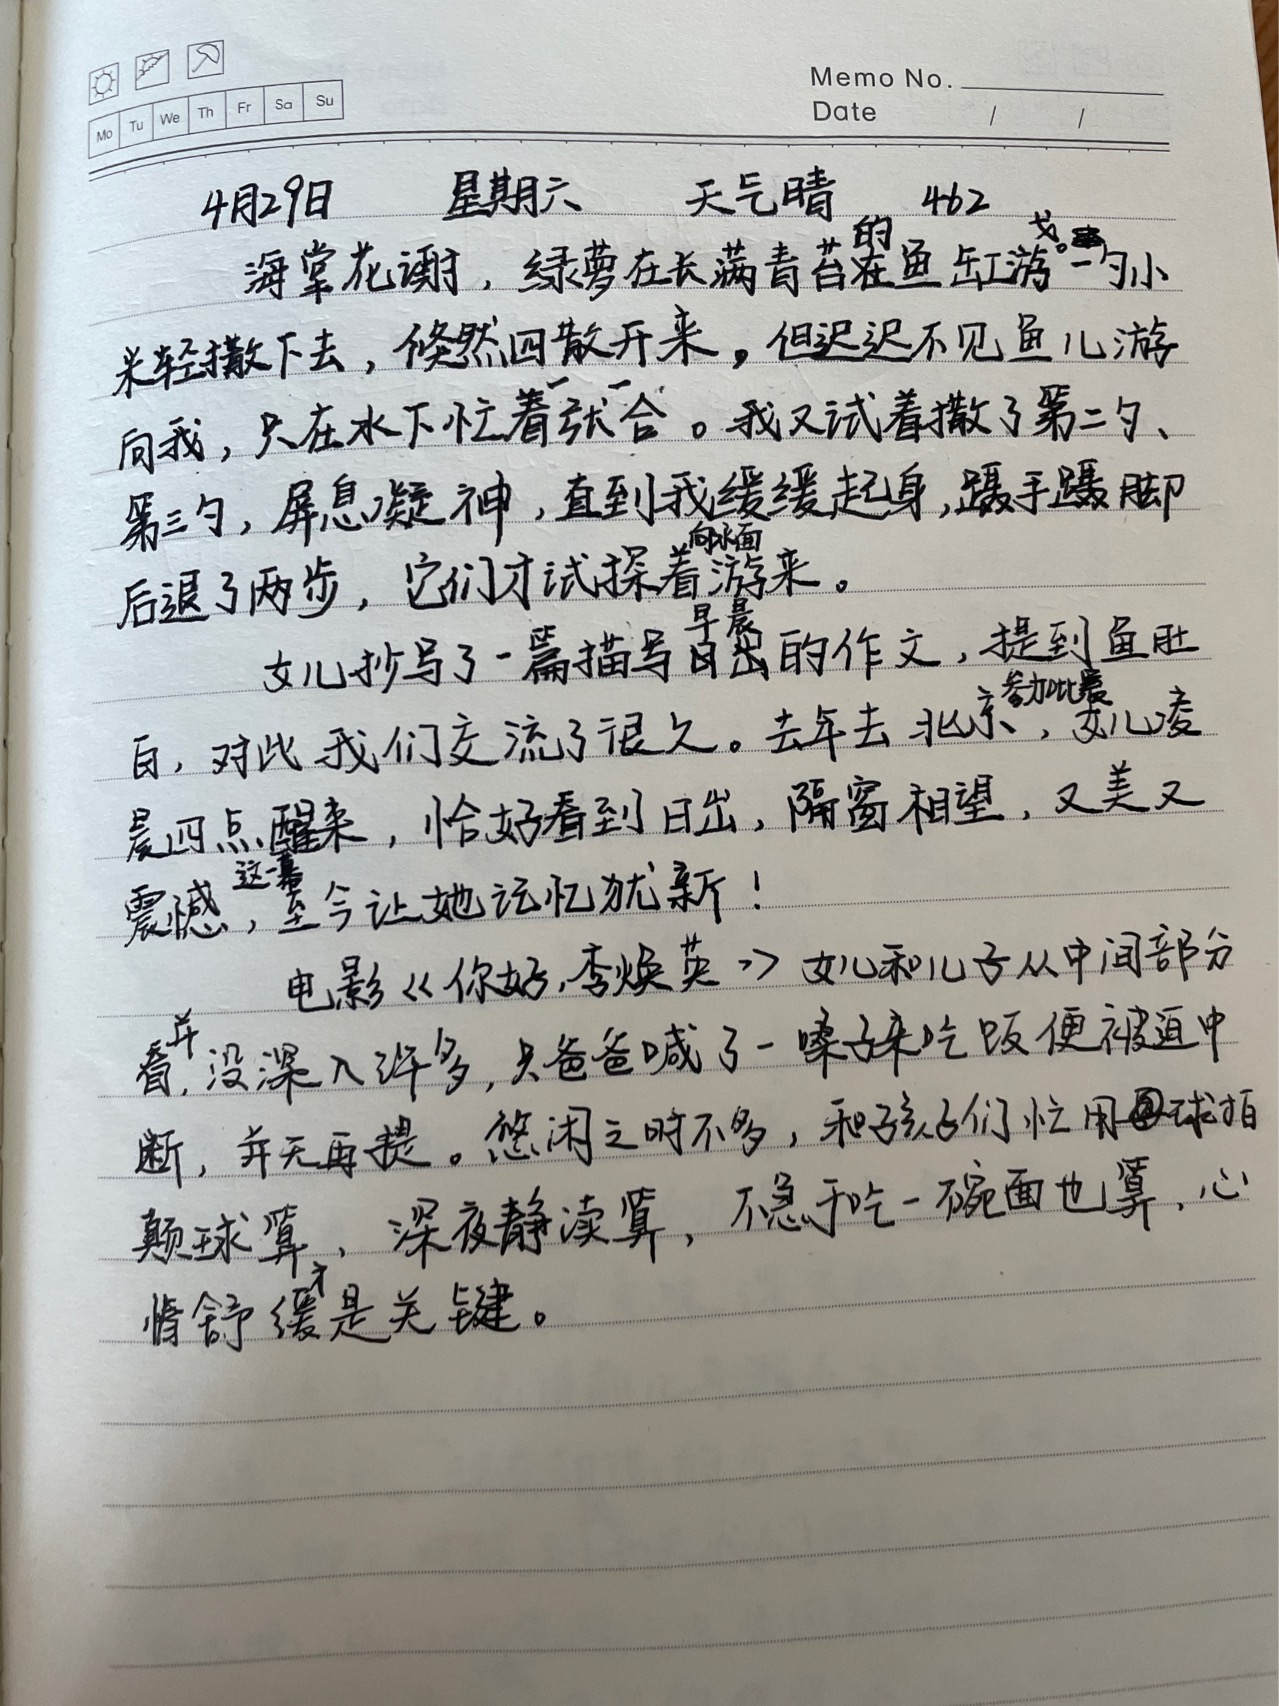 Memo No.
Mo Tu We Th Fr Sa Su
Date / /
4月29日 星期六 天气晴 462
海棠花谢，绿萝在长满青苔的鱼缸游戈。一勺小
米轻撒下去，倏然四散开来，但迟迟不见鱼儿游
向我，只在水下忙着一张一合。我又试着撒了第二勺、
第三勺，屏息凝神，直到我缓缓起身，蹑手蹑脚
后退了两步，它们才试探着向水面游来。
女儿抄写了一篇描写早晨日出的作文，提到鱼肚
白，对此我们交流了很久。去年去北京参加比赛，女儿凌
晨四点醒来，恰好看到日出，隔窗相望，又美又
震憾，这一幕至今让她记忆犹新！
电影《你好,李焕英》女儿和儿子从中间部分
看，并没深入许多，只爸爸喊了一嗓子来吃饭便被迫中
断，并无再提。悠闲之时不多，和孩子们忙用球拍
颠球算，深夜静读算，不急于吃一碗面也算，心
情舒缓才是关键。